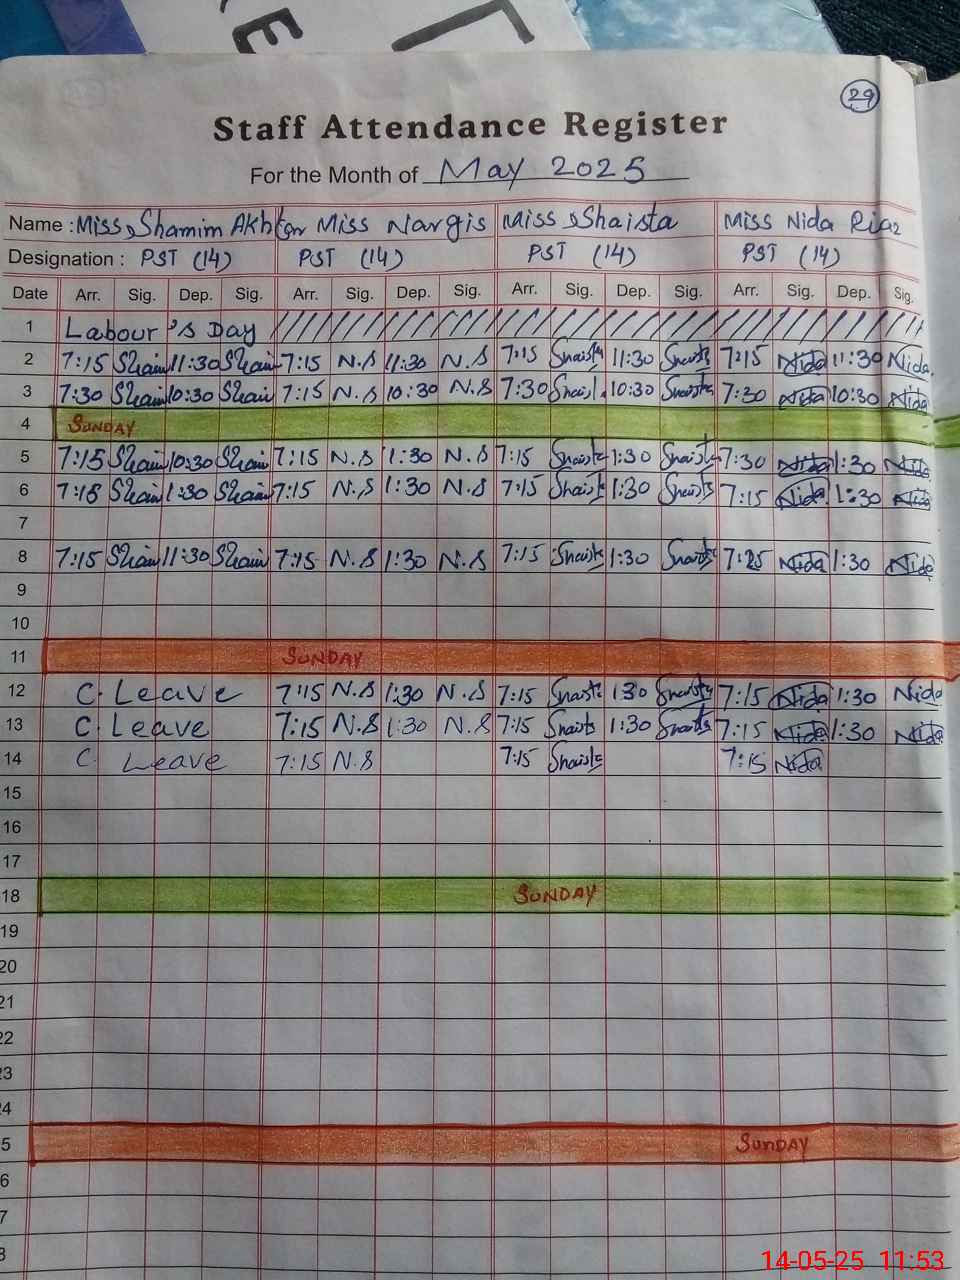 29
Staff Attendance Register
For the Month of May 2025
Name : Miss Shamim Akhtar Miss Nargis Miss Shaista Miss Nida Riaz
Designation : PST (14) PST (14) PST (14) PST (14)
Date Arr. Sig. Dep. Sig. Arr. Sig. Dep. Sig. Arr. Sig. Dep. Sig. Arr. Sig. Dep. Sig.
1 Labour's Day
2 7:15 11:30 7:15 N.S 11:30 N.S 7:15 Shaista 11:30 Shaista 7:15 Nida 11:30 Nida
3 7:30 10:30 7:15 N.S 10:30 N.S 7:30 Shaista 10:30 Shaista 7:30 Nida 10:30 Nida
4 SUNDAY
5 7:15 10:30 7:15 N.S 1:30 N.S 7:15 Shaista 1:30 Shaista 7:30 Nida 1:30 Nida
6 7:18 1:30 7:15 N.S 1:30 N.S 7:15 Shaista 1:30 Shaista 7:15 Nida 1:30 Nida
7
8 7:15 11:30 7:15 N.S 1:30 N.S 7:15 Shaista 1:30 Shaista 7:25 Nida 1:30 Nida
9
10
11 SUNDAY
12 C. Leave 7:15 N.S 1:30 N.S 7:15 Shaista 1 30 Shaista 7:15 Nida 1:30 Nida
13 C. Leave 7:15 N.S 1:30 N.S 7:15 Shaista 1:30 Shaista 7:15 Nida 1:30 Nida
14 C. Leave 7:15 N.S 7:15 Shaista 7:15 Nida
15
16
17
18 SUNDAY
19
20
21
22
23
24
5 SUNDAY
6
7
8
14-05-25 11:53